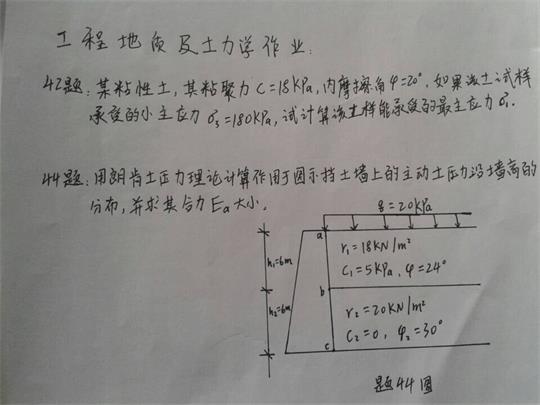 工程地质及土力学作业:
42题: 某粘性土, 其粘聚力 C=18kPa, 内摩擦角φ=20°, 如果该土试样
承受的小主应力 σ₃=180kPa, 试计算该土样能承受的最主应力 σ₁.
44题: 用朗肯土压力理论计算作用于图示挡土墙上的主动土压力沿墙高的
分布, 并求其合力 Ea大小.
q=20kPa
a
h₁=6m
r₁=18KN/m²
C₁=5kPa, φ=24°
b
h₂=6m
r₂=20KN/m²
C₂=0, φ₂=30°
c
题44图